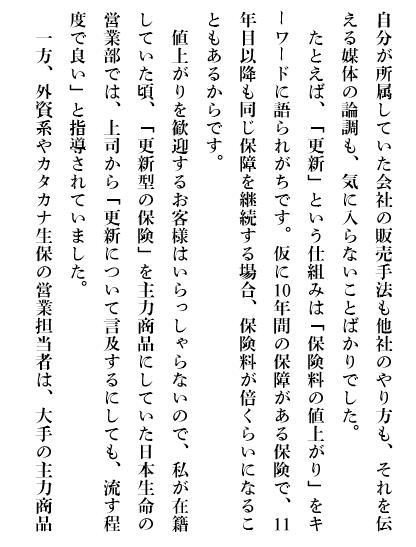 自分が所属していた会社の販売手法も他社のやり方も、それを伝
える媒体の論調も、気に入らないことばかりでした。
　たとえば、「更新」という仕組みは「保険料の値上がり」をキ
ーワードに語られがちです。仮に10年間の保障がある保険で、11
年目以降も同じ保障を継続する場合、保険料が倍くらいになるこ
ともあるからです。
　値上がりを歓迎するお客様はいらっしゃらないので、私が在籍
していた頃、「更新型の保険」を主力商品にしていた日本生命の
営業部では、上司から「更新について言及するにしても、流す程
度で良い」と指導されていました。
　一方、外資系やカタカナ生保の営業担当者は、大手の主力商品